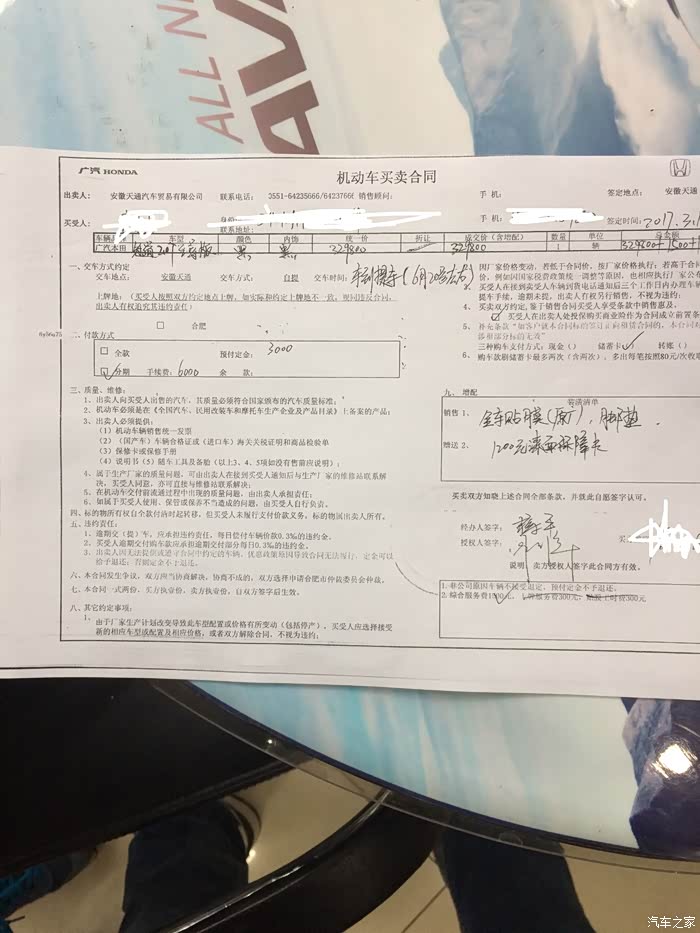 ALL N
AVA
广汽 HONDA
机动车买卖合同
出卖人： 安徽天通汽车贸易有限公司 联系电话： 3551-64235666/6423766 销售顾问： 手机： 签定地点： 安徽天通
买受人： 手机： 签定时间：2017.3.1
联系地址：
车型 颜色 内饰 统一价 折让 成交价（含增配） 数量 单位 总金额
广汽本田 黑 黑 329800 329800 1 辆 329800+1500+1
一、交车方式约定
交车地点： 安徽天通 交车方式： 自提 交车时间：
上牌地：（买受人按照双方约定地点上牌，如实际和约定上牌地不一致，视同违反合同，
出卖人有权追究其违约责任）
合肥
6y56u75
二、付款方式
全款 预付定金： 3000
分期 手续费：6000 余 款：
三、质量、维修：
1、出卖人向买受人出售的汽车，其质量必须符合国家颁布的汽车质量标准；
2、机动车必须是在《全国汽车、民用改装车和摩托车生产企业及产品目录》上备案的产品；
3、出卖人必须提供：
（1）机动车辆销售统一发票
（2）（国产车）车辆合格证或（进口车）海关关税证明和商品检验单
（3）保修卡或保修手册
（4）说明书（5）随车工具及备胎（以上3、4、5项如没有售前应说明）；
4、属于生产厂家的质量问题，可由出卖人在接到买受人通知后与生产厂家的维修站联系解
决，买受人同意，亦可直接与维修站联系解决；
5、在机动车交付前流通过程中出现的质量问题，由出卖人承担责任；
6、如属于买受人使用、保管或保养不当造成的问题，由买受人自行负责。
四、标的物所有权自全款付清时起转移，但买受人未履行支付价款义务，标的物属出卖人所有。
五、违约责任：
1、逾期交（提）车，应承担违约责任，每日偿付车辆价款0.3%的违约金。
2、买受人逾期交付购车款应承担逾期交付部分每日0.3%的违约金。
3、出卖人因无法提供或遵守合同中约定的车辆、优惠政策原因导致合同无法履行，定金可以
给予退还；否则定金不予退还。
六、本合同发生争议，双方应当协商解决，协商不成的，双方选择申请合肥市仲裁委员会仲裁。
七、本合同一式两份，买方执壹份，卖方执壹份，自双方签字后生效。
八、其它约定事项：
1、
由于厂家生产计划改变导致此车型配置或价格有所变动（包括停产），买受人应选择接受
新的相应车型或配置及相应价格，或者双方解除合同，不视为违约；
因厂家价格变动，若低于合同价，按厂家价格执行；若高于合同
价，例如因国家税费政策统一调整等原因，也相应执行厂家公布
3、买受人在接到卖受人到货电话通知后三个工作日内办理车辆
提车手续，逾期未提，出卖人有权另行销售，不视为违约；
4、卖卖双方约定，鉴于销售合同买受人享受条款中销售惠及，
买受人在出卖人处投保购买商业险作为合同成立前置条
5、
三种购车支付方式：现金（） 储蓄卡 转账（）
6、购车款刷储蓄卡最多两次（含两次），多出每笔按照80元/次收取
九、增配
装潢清单
销售 1、 全车贴膜（原厂），脚垫.
赠送 2、 1200元漆面保障卡
买卖双方知晓上述合同全部条款，并就此自愿签字认可。
经办人签字：
授权人签字：
说明：卖方授权人签字此合同方有效。
1. 非公司原因车辆不接受退定，预付定金不予退还。
2. 综合服务费1500元， 服务费300元；
汽车之家